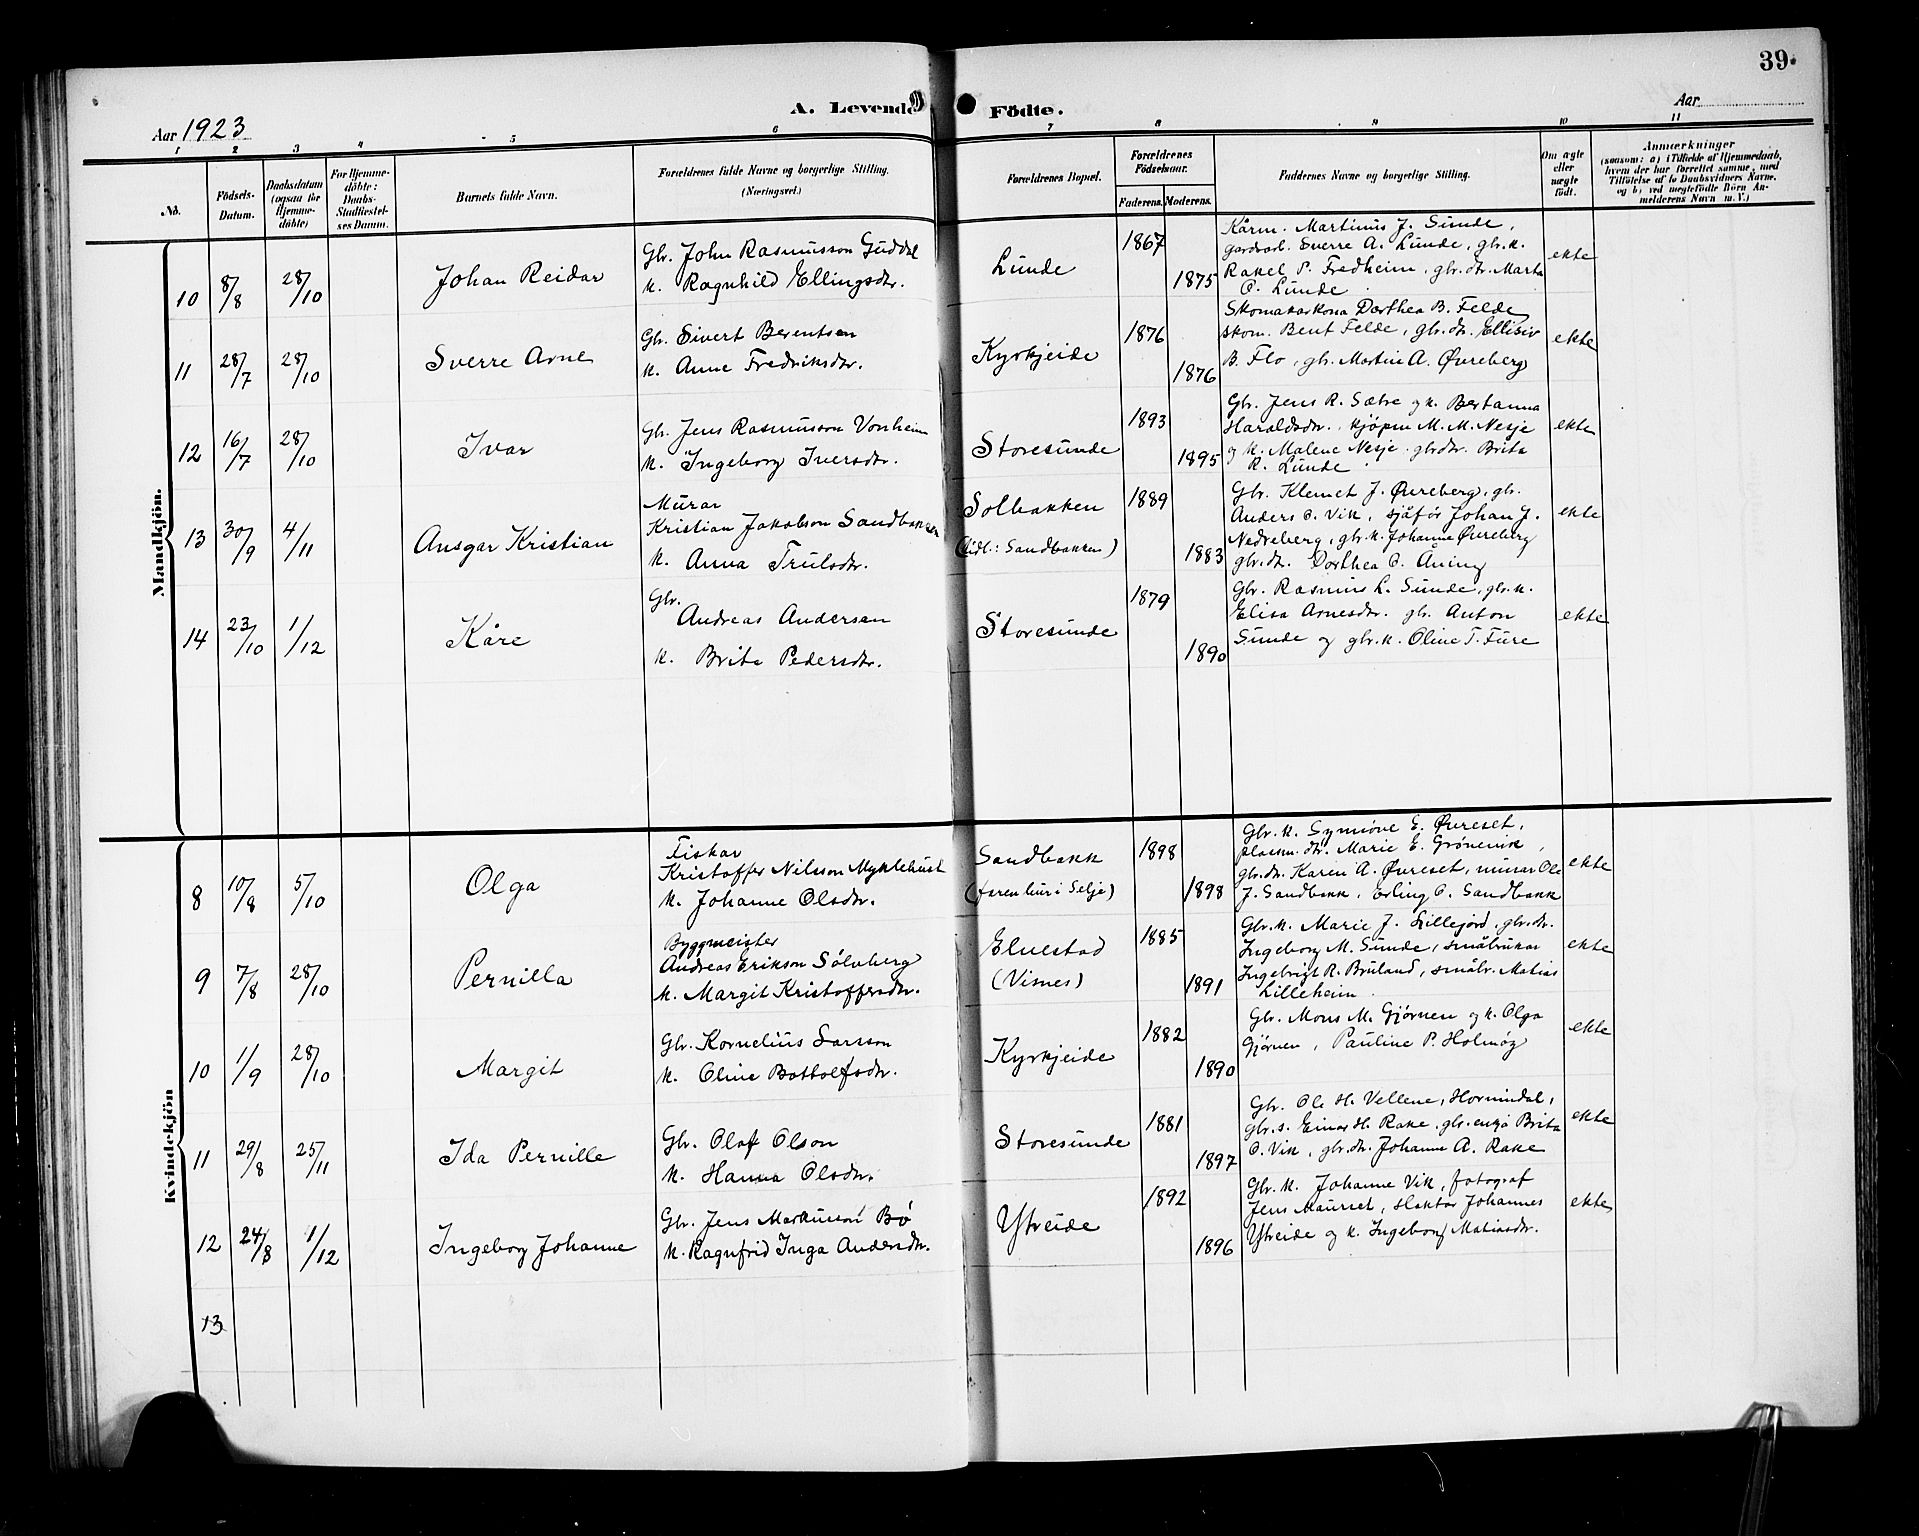 39
A. Levende Födte.
Aar 1923
Aar
1 2 3 4 5 6 7 8 9 10 11
No.
Födsels-Datum.
Daabsdatum (ogsaa for Hjemme-döbte)
For Hjemme-döbte: Daabs-Stadfæstel-ses Datum.
Barnets fulde Navn.
Forældrenes fulde Navne og borgerlige Stilling. (Næringsvei.)
Forældrenes Bopæl.
Forældrenes Födselsaar.
Faderens. Moderens.
Faddernes Navne og borgerlige Stilling.
Om ægte eller uægte födt.
Anmærkninger
(saasom: a) i Tilfælde af Hjemmedaab,
hvem der har forrettet samme, med
Tilföielse af to Daabsvidners Navne,
og b) ved uegtefödte Börn An-
melderens Navn m. V.)
Mandkjön.
10 8/8 28/10 Johan Reidar
Gbr. John Rasmusson Guddal
k. Ragnhild Ellingsdtr.
Lunde 1867 1875
Kårm. Martinus J. Sunde,
gardarb. Sverre A. Lunde, gbr.k.
Rakel P. Fredheim, gbr.dtr. Marta
O. Lunde
ekte
11 28/7 28/10 Sverre Arne
Gbr. Sivert Berentsen
k. Anne Fredriksdtr.
Kyrkjeide 1876 1876
Skomakarkona Dorthea B. Felde
skom. Bent Felde, gbr.dtr. Ellisiv
B. Flo, gbr. Martin A. Øvreberg
ekte
12 16/7 28/10 Ivar
Gbr. Jens Rasmusson Vonheim
k. Ingeborg Iversdtr.
Storesunde 1893 1895
Gbr. Jens R. Sætre og k. Bertanna
Haraldsdtr. kjøpm M. M. Nesje
og k. Malene Nesje gbrdtr. Brita
R. Lunde
ekte
13 30/9 4/11 Ansgar Kristian
Murar
Kristian Jakobson Sandbakken
k. Anna Trulsdtr.
Solbakken
(tidl.: Sandbakken)
1889 1883
Gbr. Klemet J. Øvreberg, gbr.
Anders O. Vik, sjåfør Johan J.
Nedreberg, gbr.k. Johanne Øvreberg
gbr.dtr. Dorthea O. Åning
ekte
14 23/10 1/12 Kåre
Gbr.
Andreas Andersen
k. Brita Pedersdtr.
Storesunde 1879 1890
Gbr. Rasmus L. Sunde, gbr.k.
Elisa Arnesdtr. gbr. Anton
Sunde og gbr.k. Oline T. Fure
ekte
Kvindekjön
8 10/8 5/10 Olga
Fiskar
Kristoffer Nilsson Myklebust
k. Johanne Olsdtr.
Sandbakk
1898 1898
Gbr.k. Synnøve E. Øvreset,
dtr. Marie E. Grønevik,
gbr.dtr. Karen A. Øvreset, murar Ole
J. Sandbakk, Erling O. Sandbakk
ekte
9 7/8 28/10 Pernilla
Byggmeister
Andreas Erikson Sølvberg
k. Margit Kristoffersdtr.
Elvestad
(Visnes)
1885 1891
Gbr.k. Marie J. Lillejord, gbr.dtr.
Ingeborg M. Sunde, småbrukar
Ingebrigt R. Bruland, småbr. Matias
Lilleheim
ekte
10 1/9 28/10 Margit
Gbr. Kornelius Larsson
k. Oline Bottolfsdtr.
Kyrkjeide 1882 1890
Gbr. Mons M. Gjørven og k. Olga
Gjørven, Pauline P. Holmøy
ekte
11 29/8 25/11 Ida Pernille
Gbr. Olaf Olson
k. Hanna Olsdtr.
Storesunde 1881 1897
Gbr. Ole H. Vellene, Hornindal,
gbr.s. Einar H. Rake, gbr.enkja Brita
O. Vik, gbr.dtr. Johanne A. Rake
ekte
12 24/8 1/12 Ingeborg Johanne
Gbr. Jens Markusson Bø
k. Ragnfrid Inga Andersdtr.
Ytreide 1892 1896
Gbr.k. Johanne Vik, fotograf
Jens Maurset, slaktar Johannes
Ytreide og k. Ingeborg Matiasdtr.
ekte
13